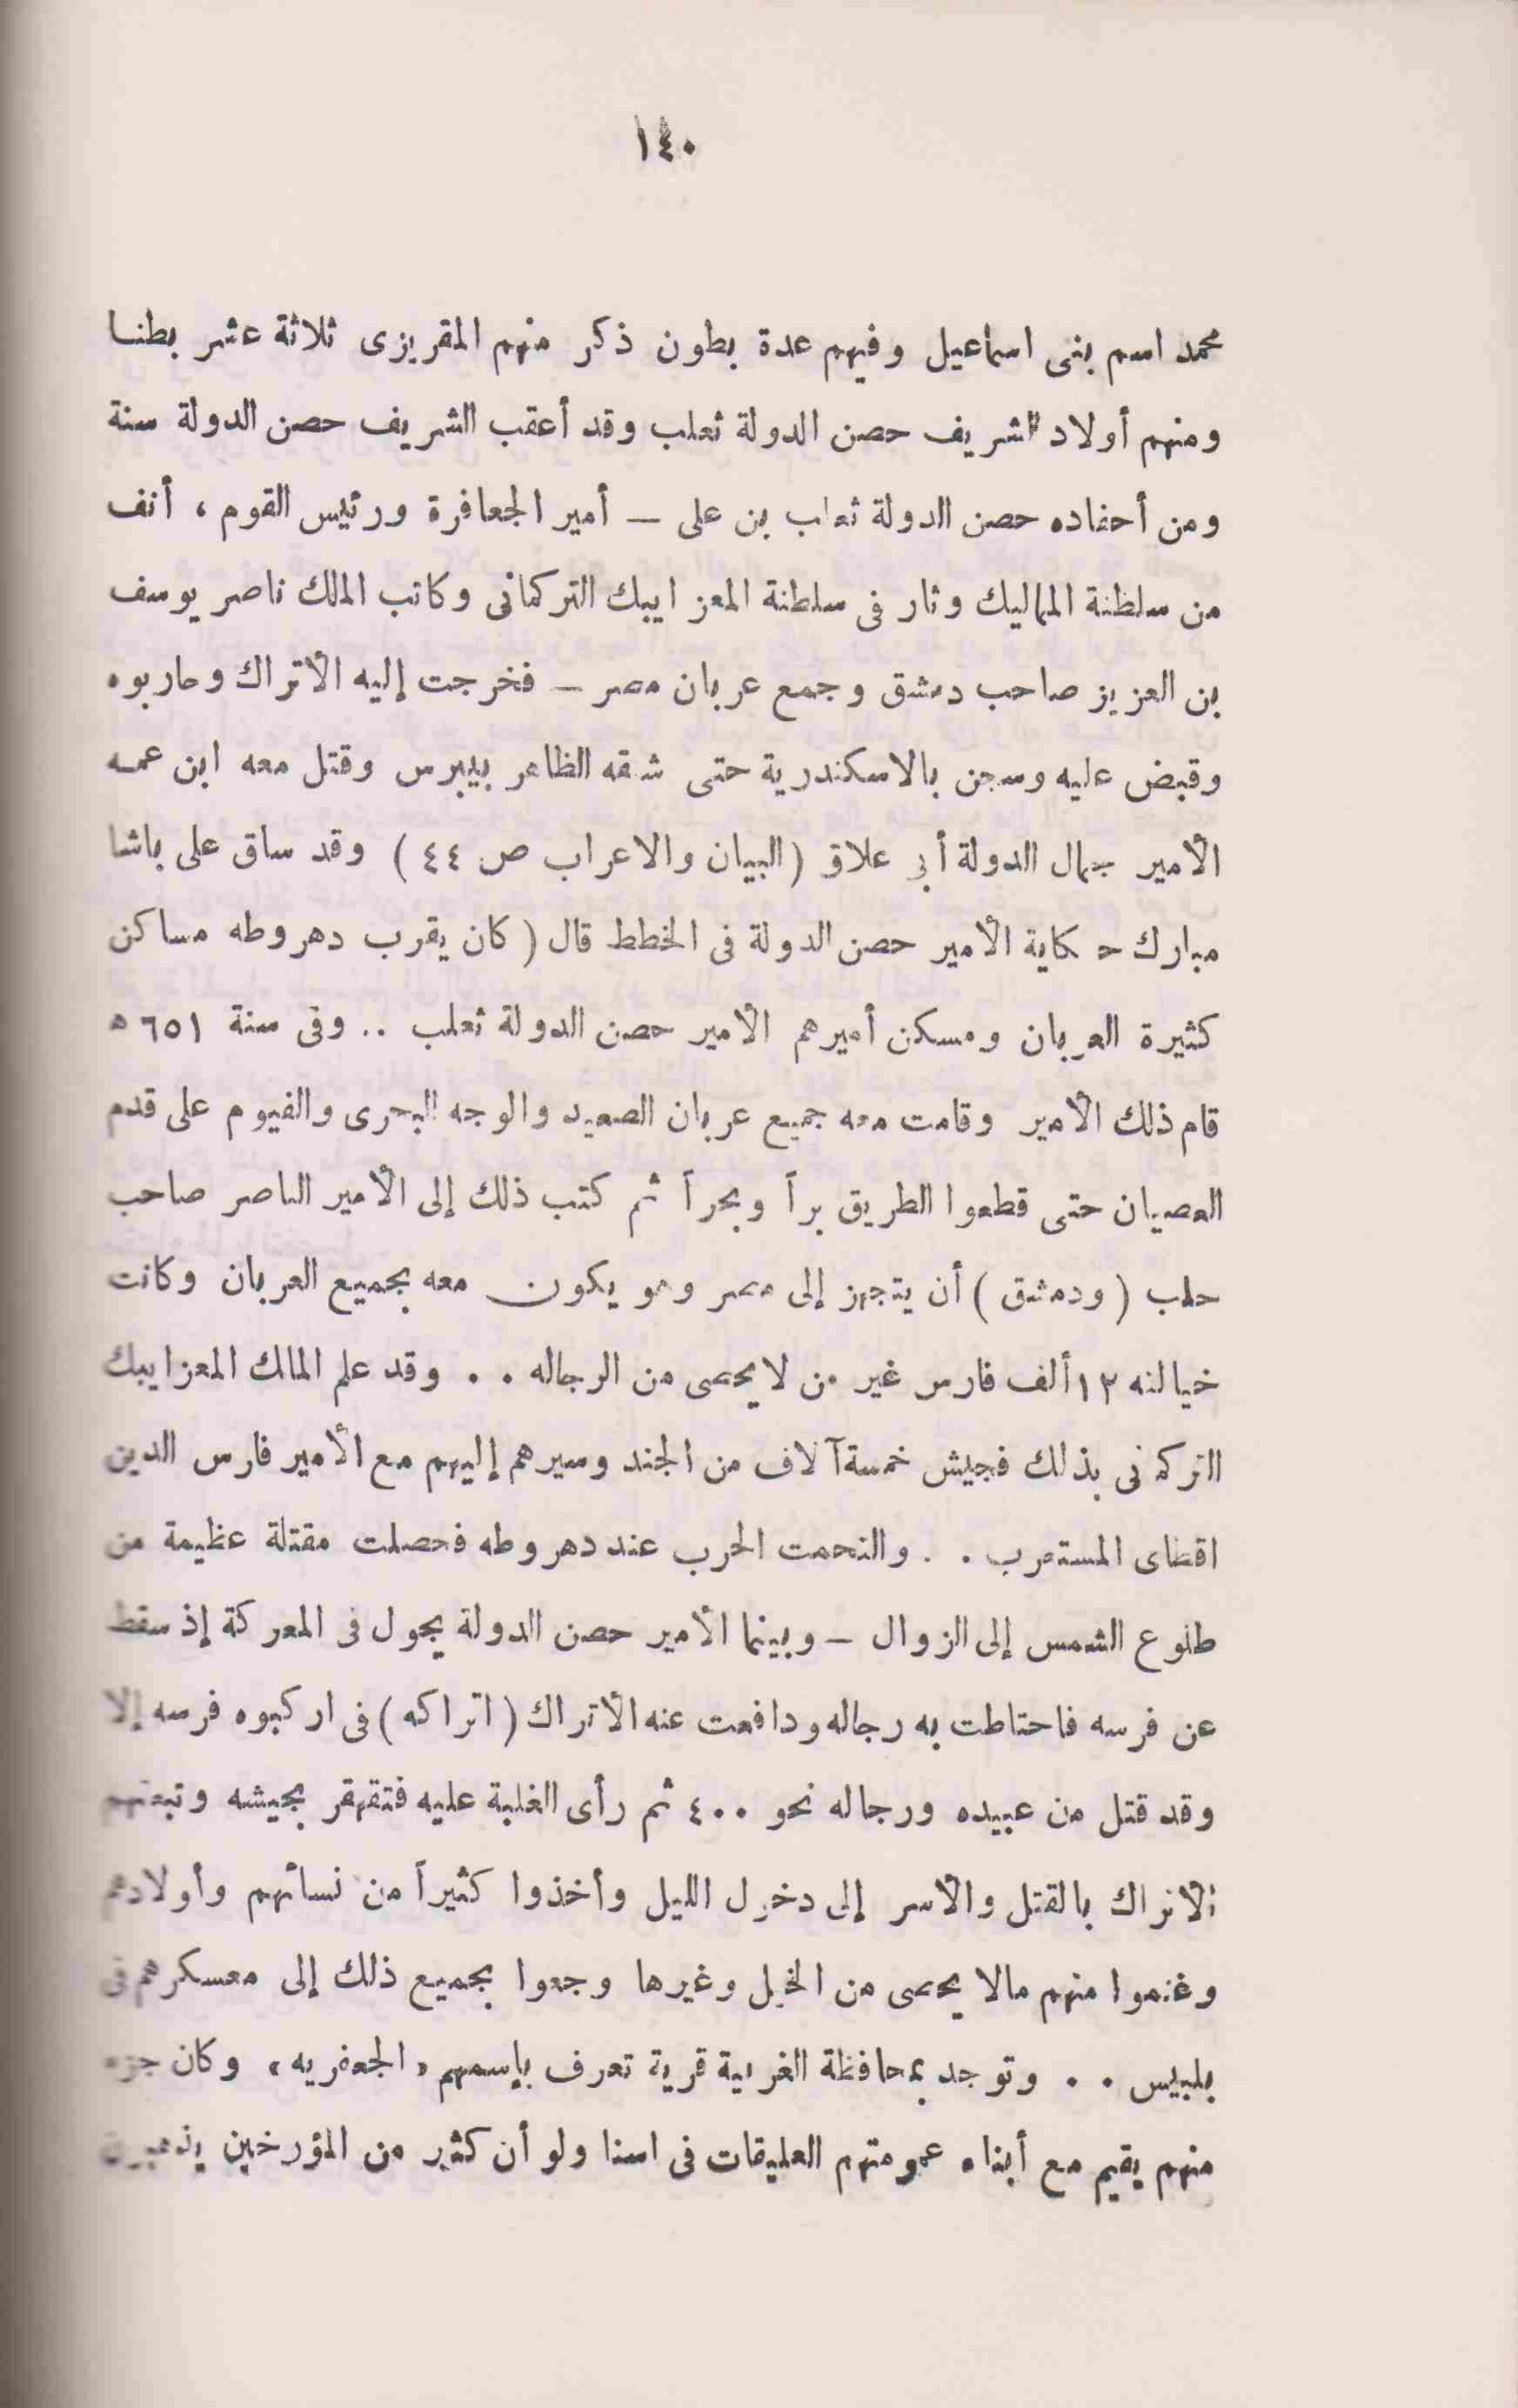 ١٤٠
محمد اسم بنى اسماعيل وفيهم عدة بطون ذكر منهم المقريزى ثلاثة عشر بطنا
ومنهم أولاد الشريف حصن الدولة ثعلب وقد أعقب الشريف حصن الدولة ستة
ومن أحفاده حصن الدولة ثعلب بن على – أمير الجعافرة ورئيس القوم ، أنف
من سلطنة المماليك وثار فى سلطنة المعز ايبك التركمانى وكاتب الملك ناصر يوسف
بن العزيز صاحب دمشق وجمع عربان مصر – فخرجت إليه الأتراك وحاربوه
وقبض عليه وسجن بالاسكندرية حتى شنقه الظاهر بيبرس وقتل معه ابن عمه
الأمير جمال الدولة أبى علاق ( البيان والاعراب ص ٤٤ ) وقد ساق على باشا
مبارك حكاية الأمير حصن الدولة فى الخطط قال ( كان يقرب دهروطه مساكن
كثيرة العربان ومسكن أميرهم الأمير حصن الدولة ثعلب .. وفى سنة ٦٥١ ه
قام ذلك الأمير وقامت معه جميع عربان الصعيد والوجه البحرى والفيوم على قدم
العصيان حتى قطعوا الطريق براً وبحراً ثم كتب ذلك إلى الأمير الناصر صاحب
حلب ( ودمشق ) أن يتجهز إلى مصر وهو يكون معه بجميع العربان وكانت
خيالته ١٢ ألف فارس غير من لا يحصى من الرجاله . . وقد علم المالك المعز ايبك
التركمانى بذلك فجيش خمسة آلاف من الجند وسيرهم إليهم مع الأمير فارس الدين
اقطاى المستعرب . . والتحمت الحرب عند دهروطه فحصلت مقتلة عظيمة من
طلوع الشمس إلى الزوال – وبينما الأمير حصن الدولة يجول فى المعركة إذ سقط
عن فرسه فاحتاطت به رجاله ودافعت عنه الأتراك ( اتراكه ) فى اركبوه فرسه إلا
وقد قتل من عبيده ورجاله نحو ٤٠٠ ثم رأى الغلبة عليه فتقهقر بجيشه وتبعتهم
الأتراك بالقتل والأسر إلى دخول الليل وأخذوا كثيراً من نسائهم وأولادهم
وغنموا منهم مالا يحصى من الخيل وغيرها وجعوا بجميع ذلك إلى معسكرهم فى
بلبيس . . وتوجد بمحافظة الغربية قرية تعرف بإسمهم « الجعفريه » وكان جزء
منهم يقيم مع أبناء عمومتهم العليقات فى اسنا ولو أن كثير من المؤرخين يذهبون